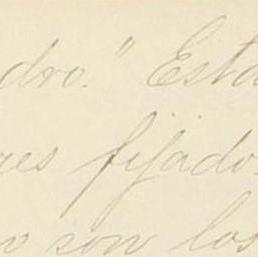 dro." Esta
res fijado
o son los